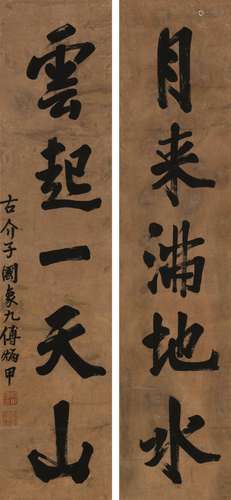 月来满地水
雲起一天山
古介子國象九傅炳甲